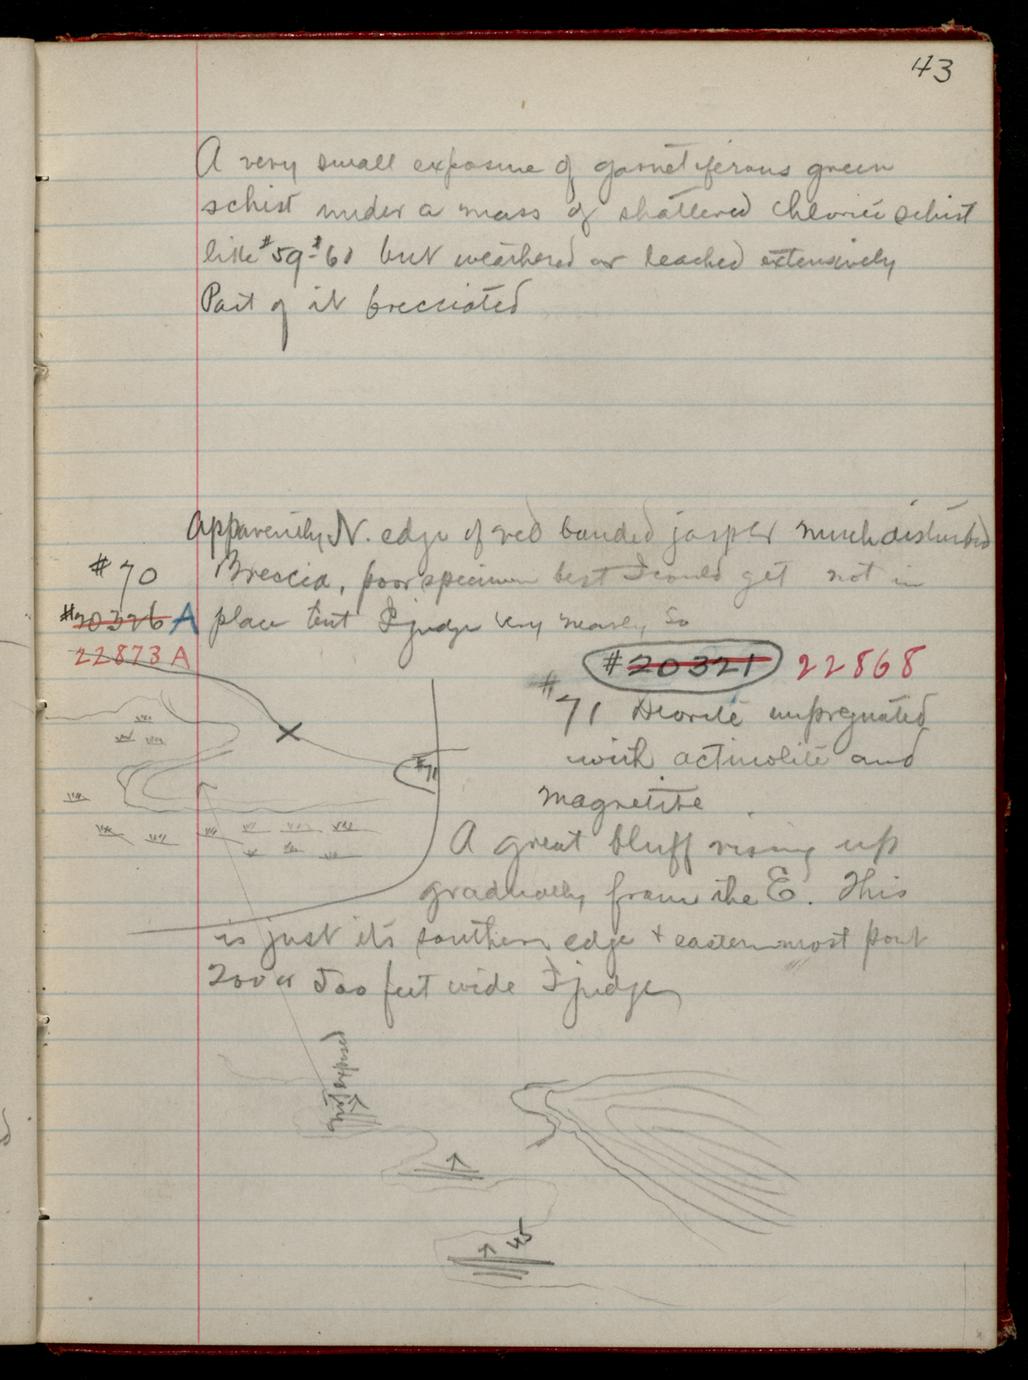 43
A very small exposure of garnetiferous green
schist under a mass of shattered chloritic schist
like #59-#60 but weathered or leached extensively
Part of it brecciated
Apparently N. edge of red banded jasper much disturbed
#70 Breccia, poor specimen best I could get not in
#20326 A place but I judge very nearly so
22873 A
#20321 22868
#71 Diorite impregnated
with actinolite and
magnetite
#71
A great bluff rising up
gradually from the E. This
is just its southern edge + eastern most part
200 or 500 feet wide I judge
exposed
45